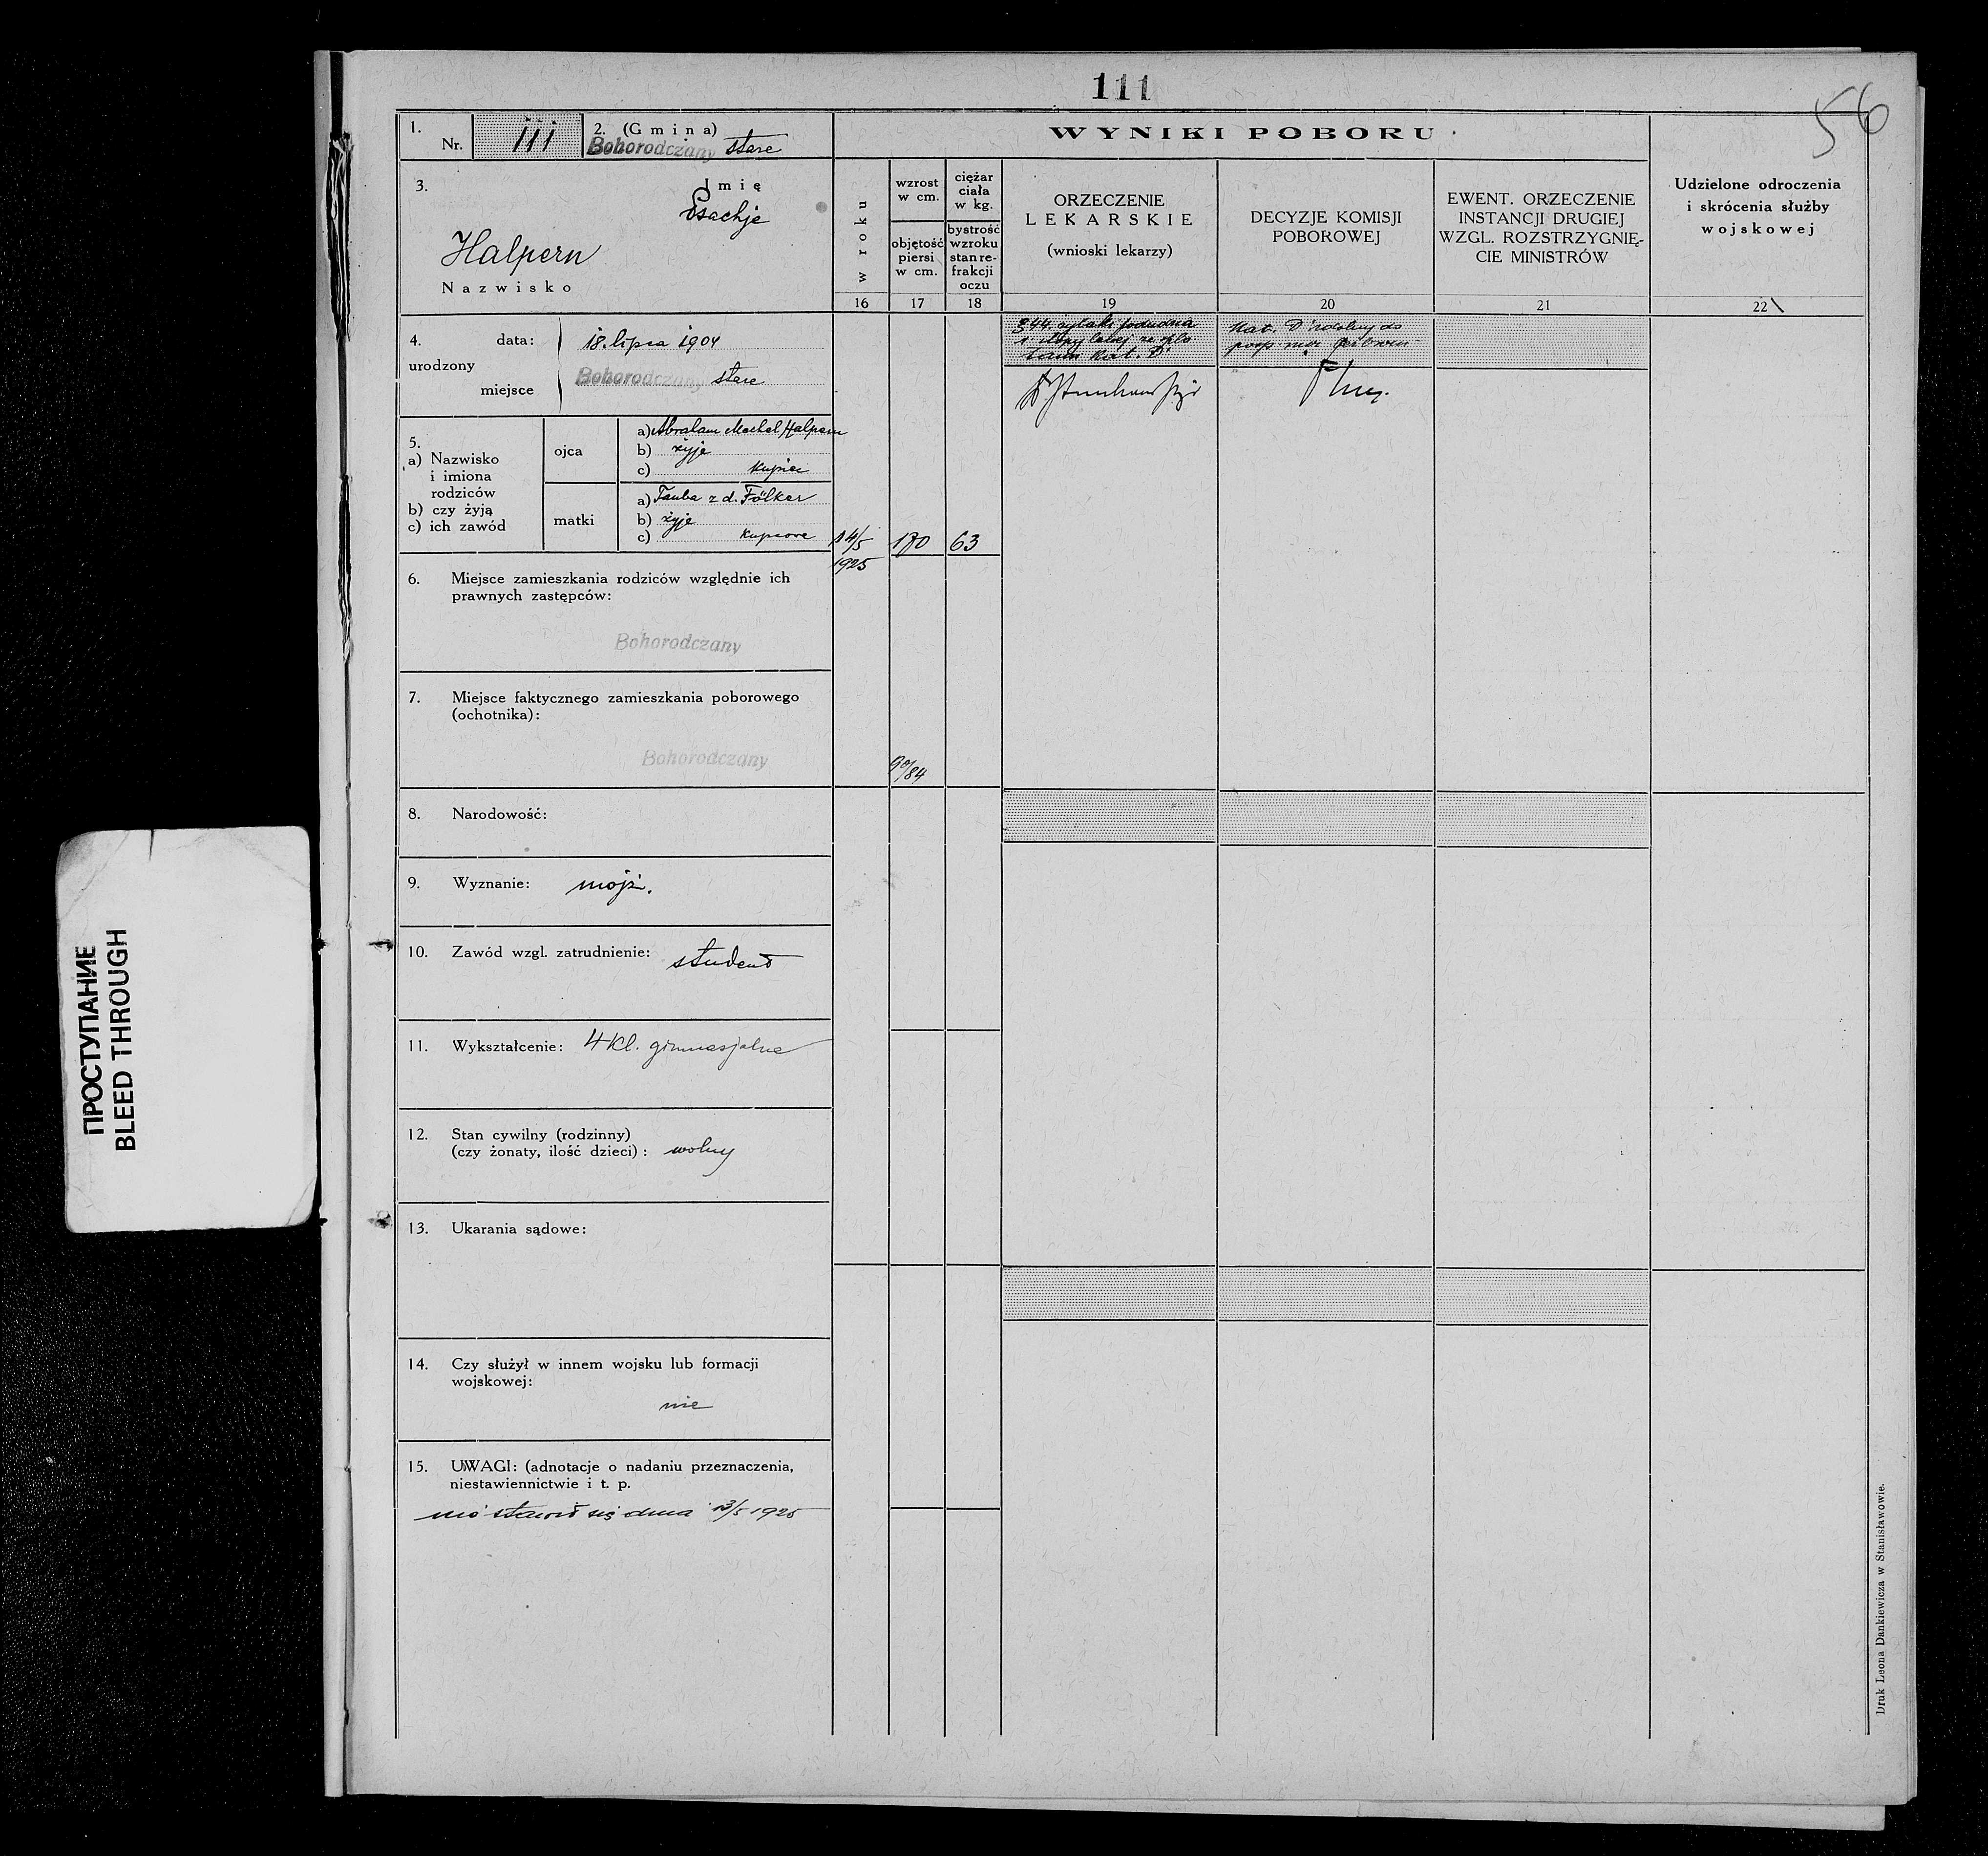 111
56
1. Nr. 111
2. (Gmina) Bohorodczany stare
WYNIKI POBORU
3. Imię
Isachje
Halpern
Nazwisko
w roku
wzrost w cm.
objętość piersi w cm.
ciężar ciała w kg.
bystrość wzroku stan refrakcji oczu
ORZECZENIE
LEKARSKIE
(wnioski lekarzy)
DECYZJE KOMISJI
POBOROWEJ
EWENT. ORZECZENIE
INSTANCJI DRUGIEJ
WZGL. ROZSTRZYGNIĘ-
CIE MINISTRÓW
Udzielone odroczenia
i skrócenia służby
wojskowej
16 17 18 19 20 21 22
4. urodzony
data: 18. lipca 1904
miejsce Bohorodczany stare
§44. żylaki podudzia
Kat. D
Kat. D zdolny do
5.
a) Nazwisko
i imiona
rodziców
b) czy żyją
c) ich zawód
ojca
a) Abraham Mechel Halpern
b) żyje
c) kupiec
matki
a) Tauba z d. Fölker
b) żyje
c) kupcowa
14/5
1925
170
63
6. Miejsce zamieszkania rodziców względnie ich
prawnych zastępców:
Bohorodczany
7. Miejsce faktycznego zamieszkania poborowego
(ochotnika):
Bohorodczany
90/84
8. Narodowość:
9. Wyznanie: mojż.
10. Zawód wzgl. zatrudnienie: student
11. Wykształcenie: 4 kl. gimnasjalne
12. Stan cywilny (rodzinny)
(czy żonaty, ilość dzieci): wolny
13. Ukarania sądowe:
14. Czy służył w innem wojsku lub formacji
wojskowej:
nie
15. UWAGI: (adnotacje o nadaniu przeznaczenia,
niestawiennictwie i t. p.
nie stawił się dnia 13/5 1925
Druk Leona Dankiewicza w Stanisławowie.
ПРОСТУПАНИЕ
BLEED THROUGH